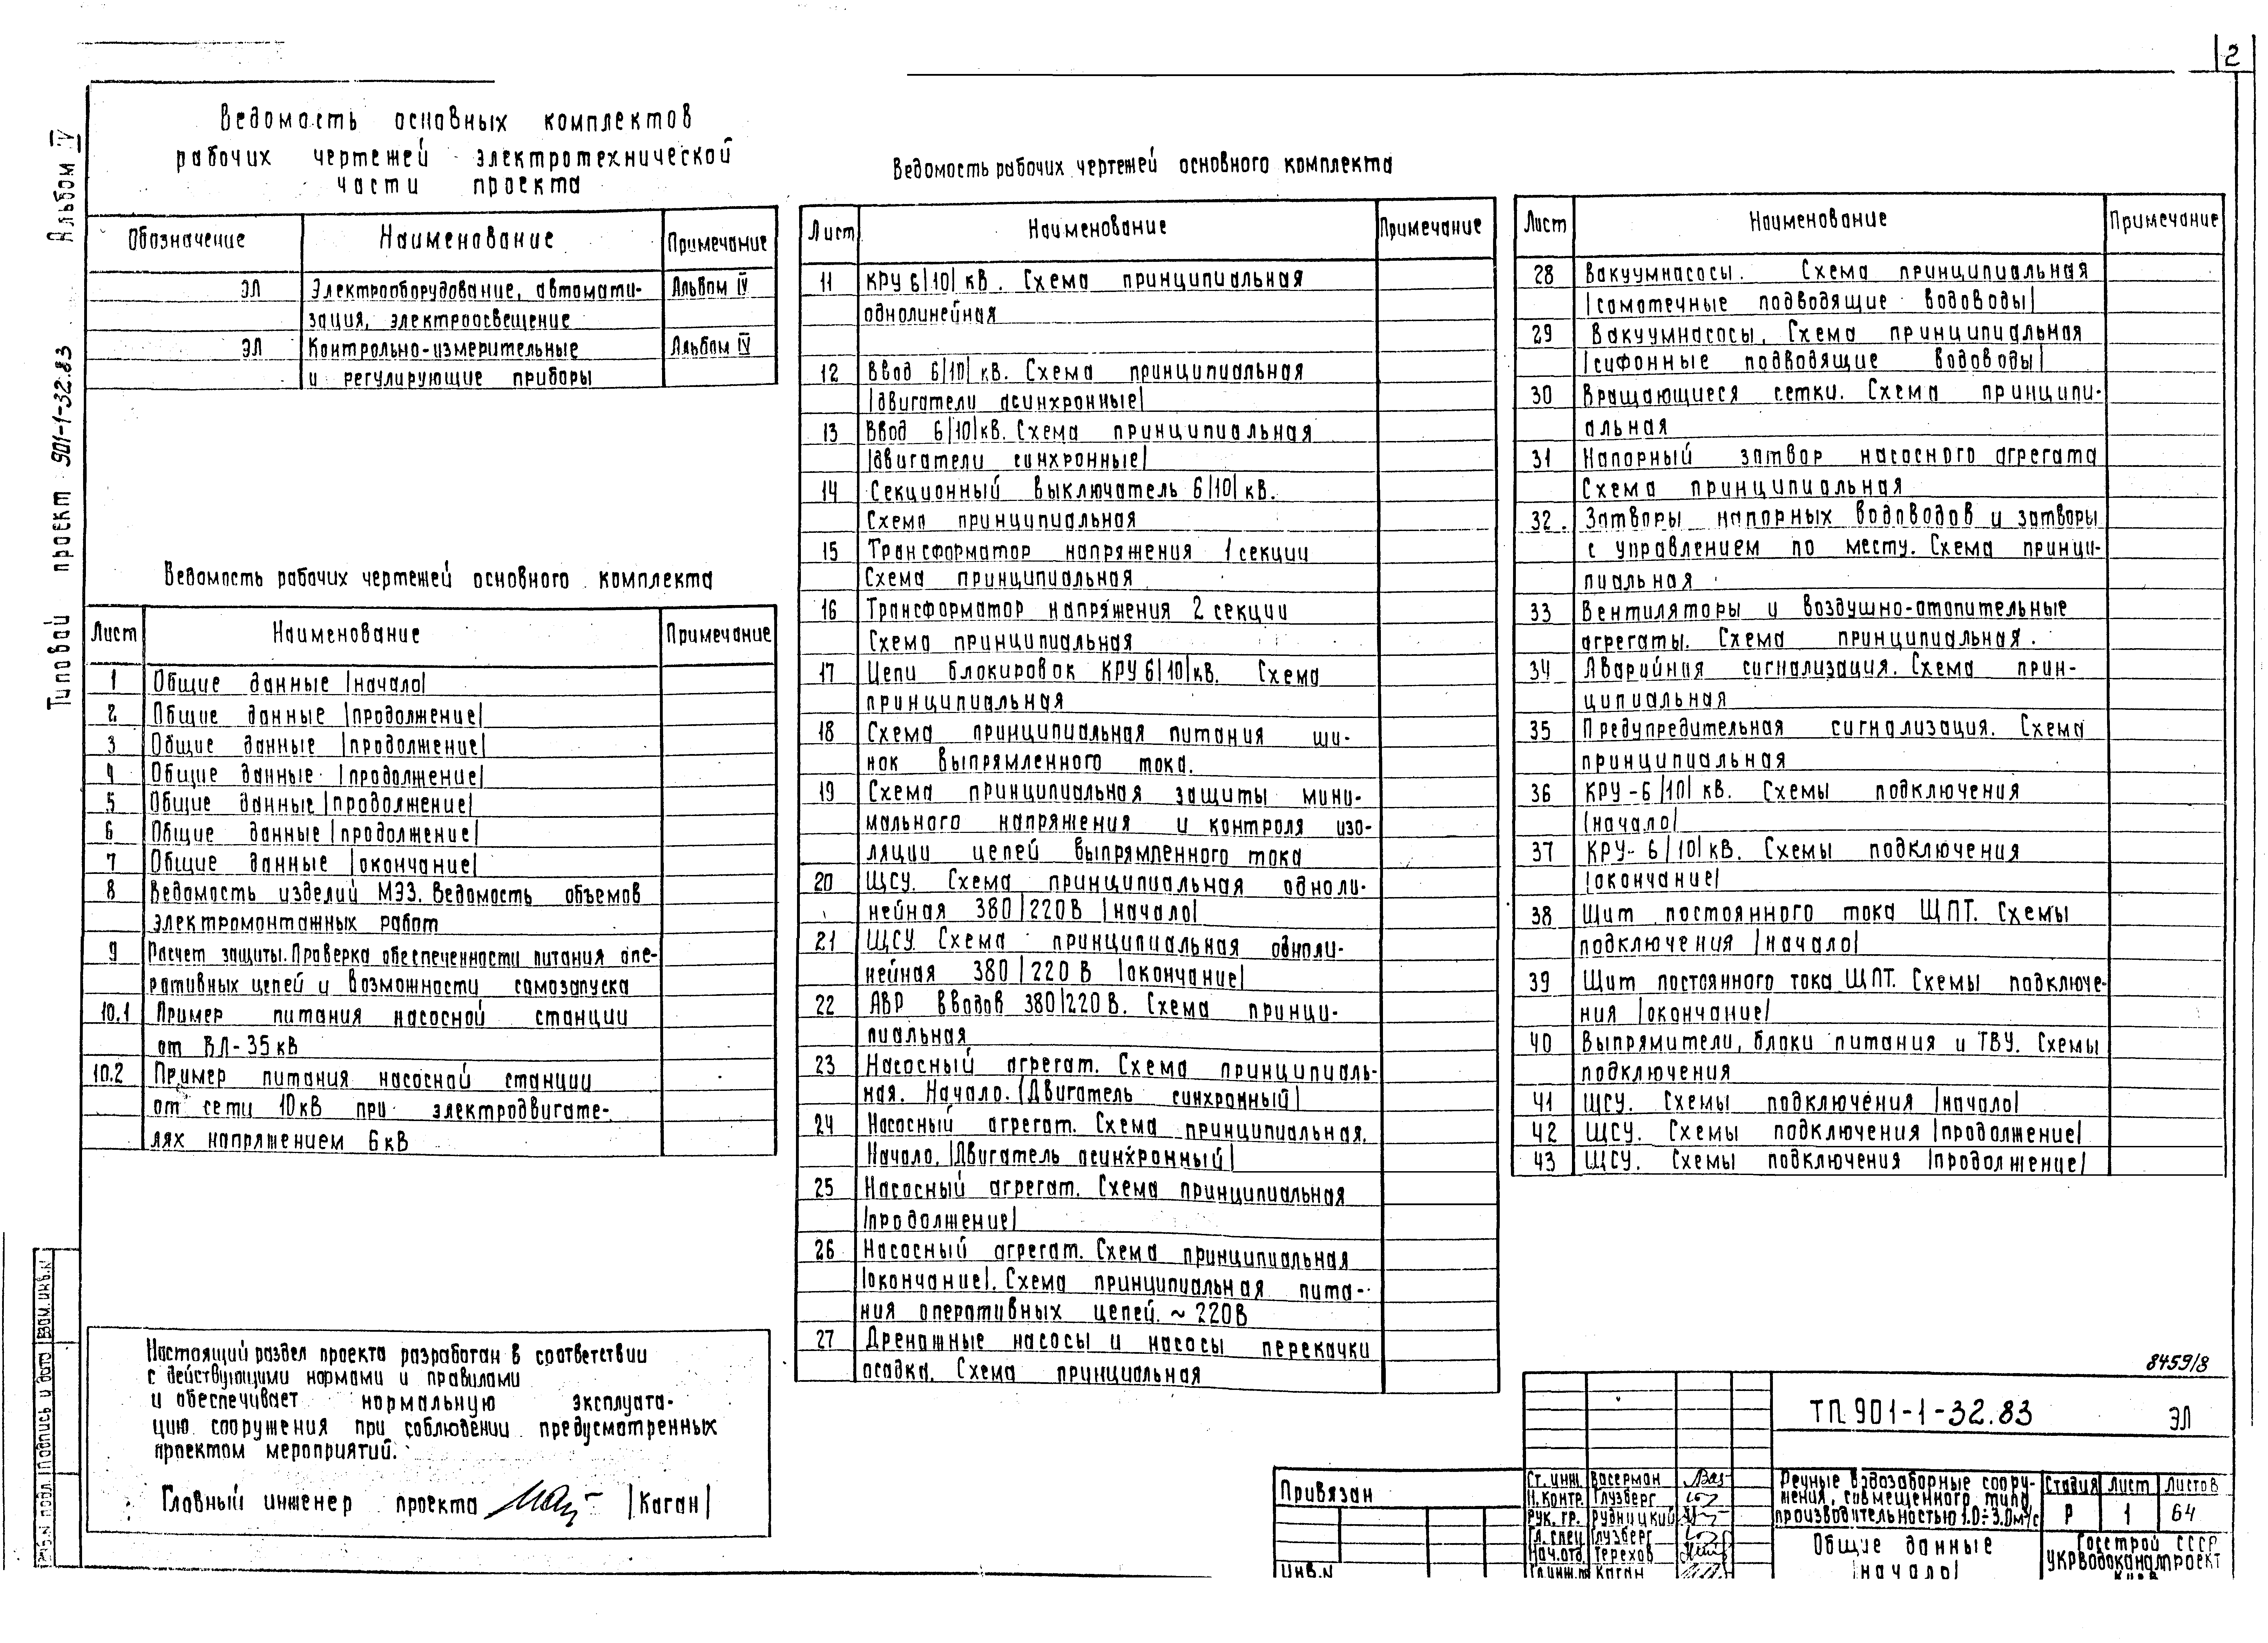 2
Альбом IV
Типовой проект 901-1-32.83
Ведомость основных комплектов
рабочих чертежей электротехнической
части проекта
Обозначение Наименование Примечание
ЭЛ Электрооборудование, автомати- Альбом IV
зация, электроосвещение
ЭЛ Контрольно-измерительные Альбом IV
и регулирующие приборы
Ведомость рабочих чертежей основного комплекта
Лист Наименование Примечание
1 Общие данные |начало|
2 Общие данные |продолжение|
3 Общие данные |продолжение|
4 Общие данные |продолжение|
5 Общие данные |продолжение|
6 Общие данные |продолжение|
7 Общие данные |окончание|
8 Ведомость изделий МЭЗ. Ведомость объемов
электромонтажных работ
9 Расчет защиты. Проверка обеспеченности питания опе-
ративных цепей и возможности самозапуска
10.1 Пример питания насосной станции
от ВЛ-35кв
10.2 Пример питания насосной станции
от сети 10кв при электродвигате-
лях напряжением 6кв
Настоящий раздел проекта разработан в соответствии
с действующими нормами и правилами
и обеспечивает нормальную эксплуата-
цию сооружения при соблюдении предусмотренных
проектом мероприятий.
Главный инженер проекта |Каган|
Ведомость рабочих чертежей основного комплекта
Лист Наименование Примечание
11 КРУ 6|10|кв. Схема принципиальная
однолинейная
12 Ввод 6|10|кв. Схема принципиальная
|двигатели асинхронные|
13 Ввод 6|10|кв. Схема принципиальная
|двигатели синхронные|
14 Секционный выключатель 6|10|кв.
Схема принципиальная
15 Трансформатор напряжения 1 секции
Схема принципиальная
16 Трансформатор напряжения 2 секции
Схема принципиальная
17 Цепи блокировок КРУ 6|10|кв. Схема
принципиальная
18 Схема принципиальная питания ши-
нок выпрямленного тока.
19 Схема принципиальная защиты мини-
мального напряжения и контроля изо-
ляции цепей выпрямленного тока
20 ЩСУ. Схема принципиальная одноли-
нейная 380/220В |начало|
21 ЩСУ. Схема принципиальная одноли-
нейная 380/220В |окончание|
22 АВР вводов 380/220В. Схема принци-
пиальная
23 Насосный агрегат. Схема принципиаль-
ная. Начало. |Двигатель синхронный|
24 Насосный агрегат. Схема принципиальная.
Начало. |Двигатель асинхронный|
25 Насосный агрегат. Схема принципиальная
|продолжение|
26 Насосный агрегат. Схема принципиальная
|окончание|. Схема принципиальная пита-
ния оперативных цепей ~ 220В
27 Дренажные насосы и насосы перекачки
осадка. Схема принципиальная
Лист Наименование Примечание
28 Вакуумнасосы. Схема принципиальная
|самотечные подводящие водоводы|
29 Вакуумнасосы. Схема принципиальная
|сифонные подводящие водоводы|
30 Вращающиеся сетки. Схема принципи-
альная
31 Напорный затвор насосного агрегата
Схема принципиальная
32. Затворы напорных водоводов и затворы
с управлением по месту. Схема принци-
пиальная
33 Вентиляторы и воздушно-отопительные
агрегаты. Схема принципиальная.
34 Аварийная сигнализация. Схема прин-
ципиальная
35 Предупредительная сигнализация. Схема
принципиальная
36 КРУ-6|10|кв. Схемы подключения
|начало|
37 КРУ-6|10|кв. Схемы подключения
|окончание|
38 Щит постоянного тока ЩПТ. Схемы
подключения |начало|
39 Щит постоянного тока ЩПТ. Схемы подключе-
ния |окончание|
40 Выпрямители, блоки питания и ТВУ. Схемы
подключения
41 ЩСУ. Схемы подключения |начало|
42 ЩСУ. Схемы подключения |продолжение|
43 ЩСУ. Схемы подключения |продолжение|
8459/8
ТП 901-1-32.83 ЭЛ
Привязан
Инв.N
Ст. инж. Васерман
Н.контр. Глузберг
Рук. гр. Рудницкий
Гл. спец Глузберг
Нач.отд. Терехов
Гл.инж.пр Каган
Речные водозаборные соору-
жения, совмещенного типа
производительностью 1.0÷3.0м³/с
Стадия Лист Листов
Р 1 64
Общие данные
|начало|
Госстрой СССР
Укрводоканалпроект
Киев
Взам. инв. N
Подпись и дата
Инв. N подл.